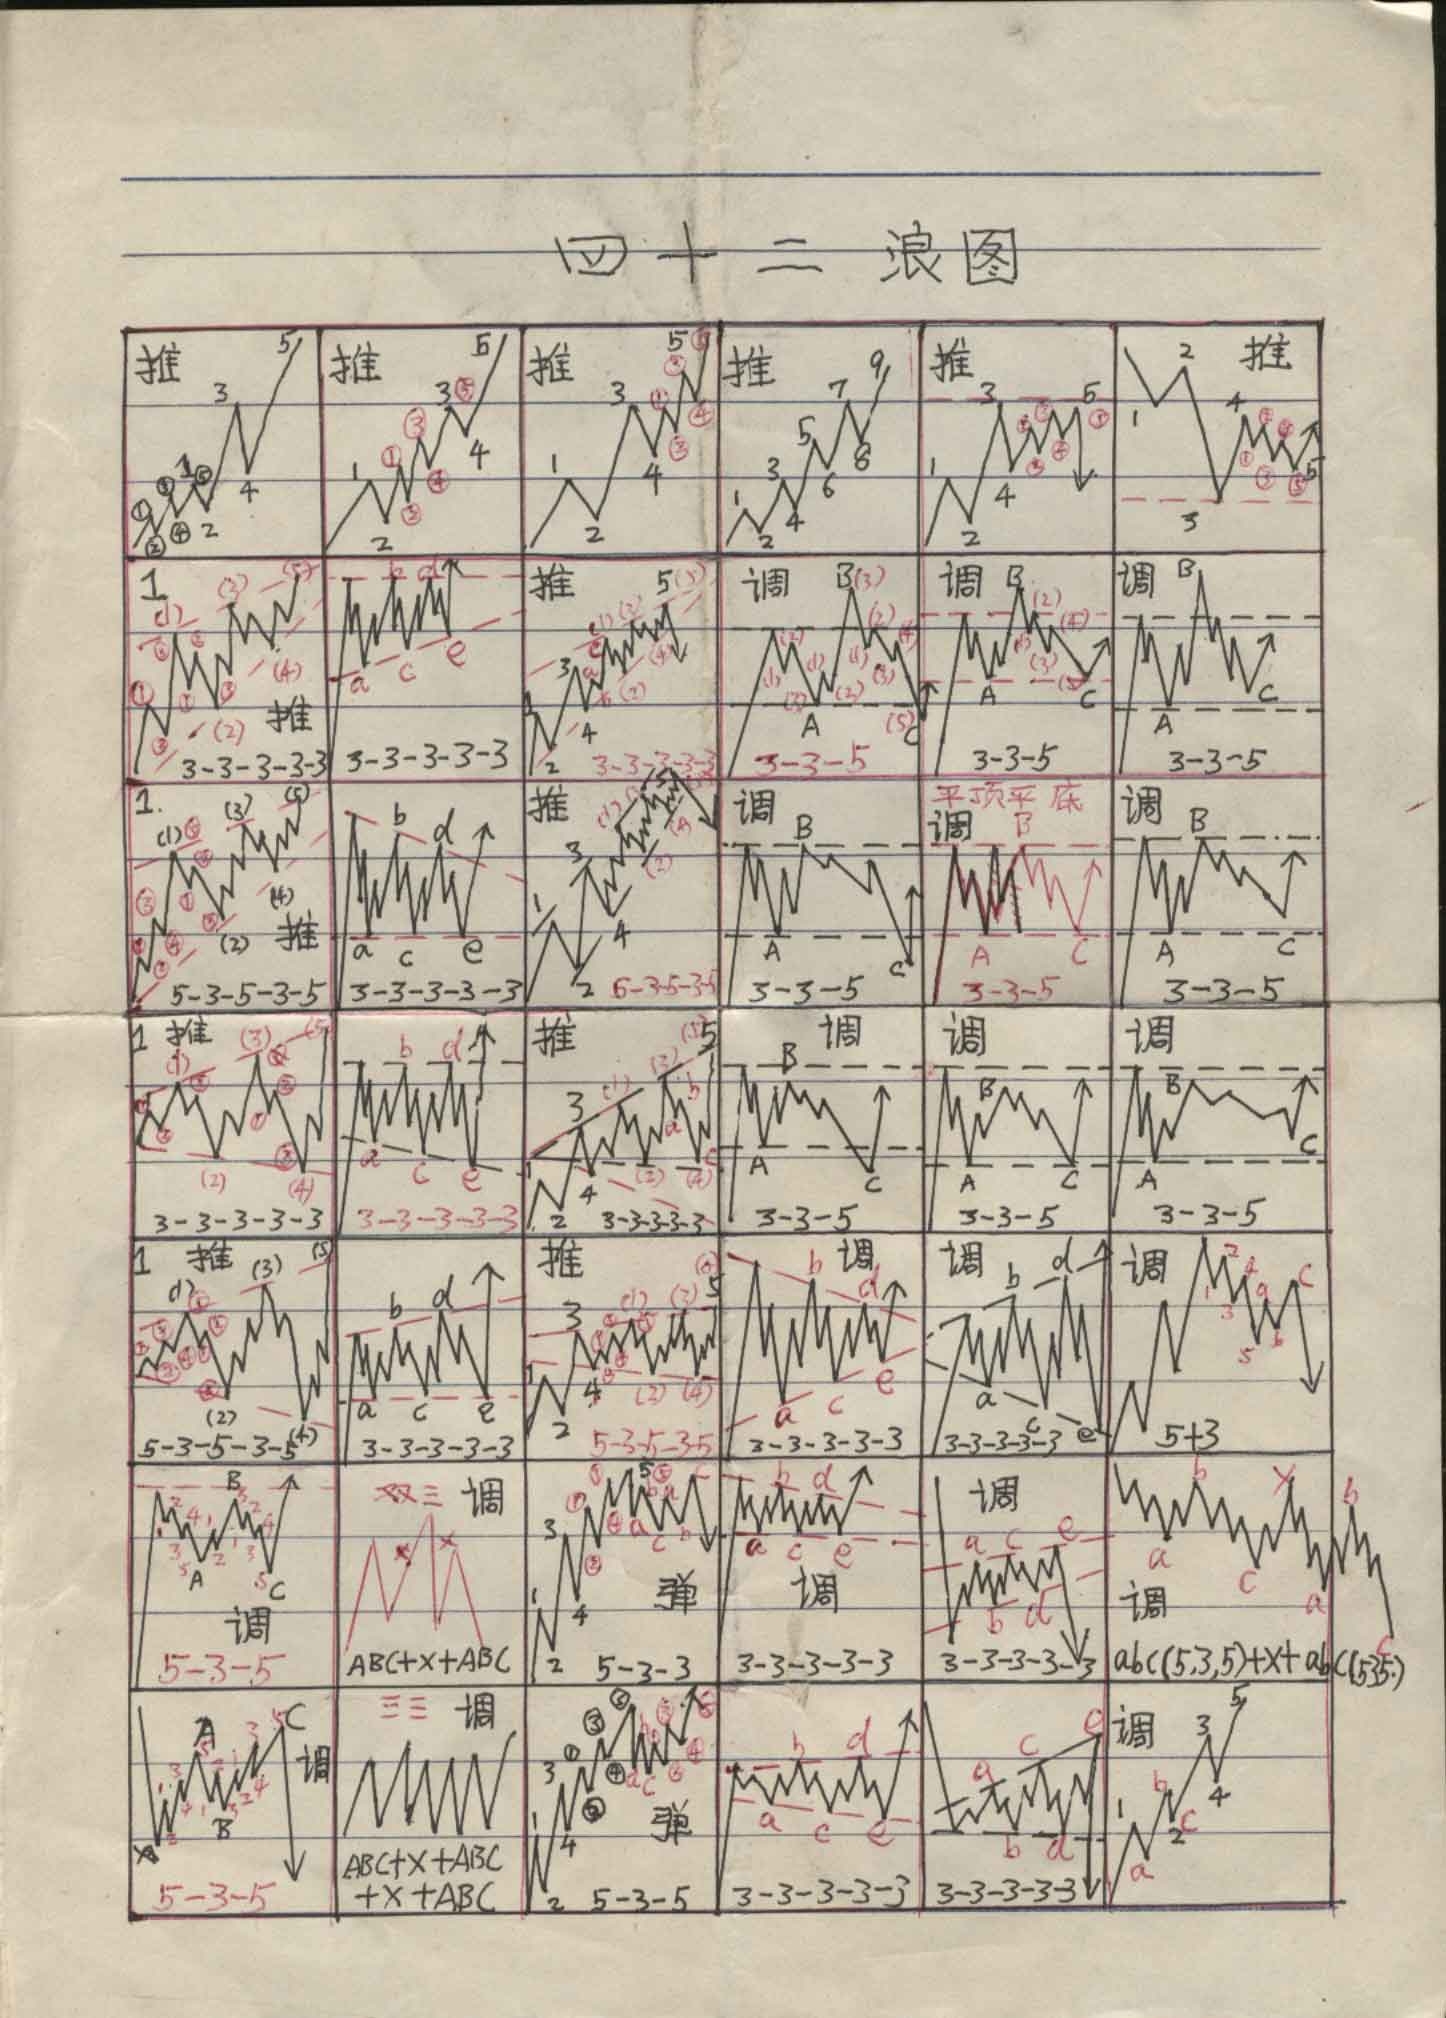 四十二浪图
推 1 2 3 4 5 ① ② ③ ④ ⑤
推 1 2 3 4 5 ① ② ③ ④ ⑤
推 1 2 3 4 5
推 1 2 3 4 5 6 7 8 9
推 1 2 3 4 5
推 1 2 3 4 5
1 (1) (2) (3) (4) (5) 推
3-3-3-3-3
a b c d e
3-3-3-3-3
推 1 2 3 4 5 (1) (2) (3) (4) (5)
3-3-3-3-3
调 A B(3) C (1) (2) (3) (4) (5)
3-3-5
调 A B C (1) (2) (3) (4) (5)
3-3-5
调 A B C
3-3-5
1. (1) (2) (3) (4) (5) 推
5-3-5-3-5
a b c d e
3-3-3-3-3
推 1 2 3 4
5-3-5-3-5
调 A B C
3-3-5
平顶平底
调 A B C
3-3-5
调 A B C
3-3-5
1 推 (1) (2) (3) (4) (5)
3-3-3-3-3
a b c d e
3-3-3-3-3
推 1 2 3 4 5 (1) (2) (3) (4) (5) a b c
3-3-3-3-3
调 A B C
3-3-5
调 A B C
3-3-5
调 A B C
3-3-5
1 推 (1) (2) (3) (4) (5)
5-3-5-3-5
a b c d e
3-3-3-3-3
推 1 2 3 4 5 (1) (2) (3) (4)
5-3-5-3-5
调 a b c d e
3-3-3-3-3
调 a b c d e
3-3-3-3-3
调 1 2 3 4 5 a b c
5+3
A B C 1 2 3 4 5
调
5-3-5
双三 调
x x
ABC+X+ABC
1 2 3 4 5 a b c
弹
5-3-3
a b c d e
调
3-3-3-3-3
调 a b c d e
3-3-3-3-3
a b c x a b c
调
abc(5,3,5)+x+abc(535)
A B C 1 2 3 4 5 调
5-3-5
三三 调
ABC+X+ABC
+X+ABC
1 2 3 4 a b c
弹
5-3-5
a b c d e
3-3-3-3-3
a b c d e
3-3-3-3-3
调 1 2 3 4 5 a b c